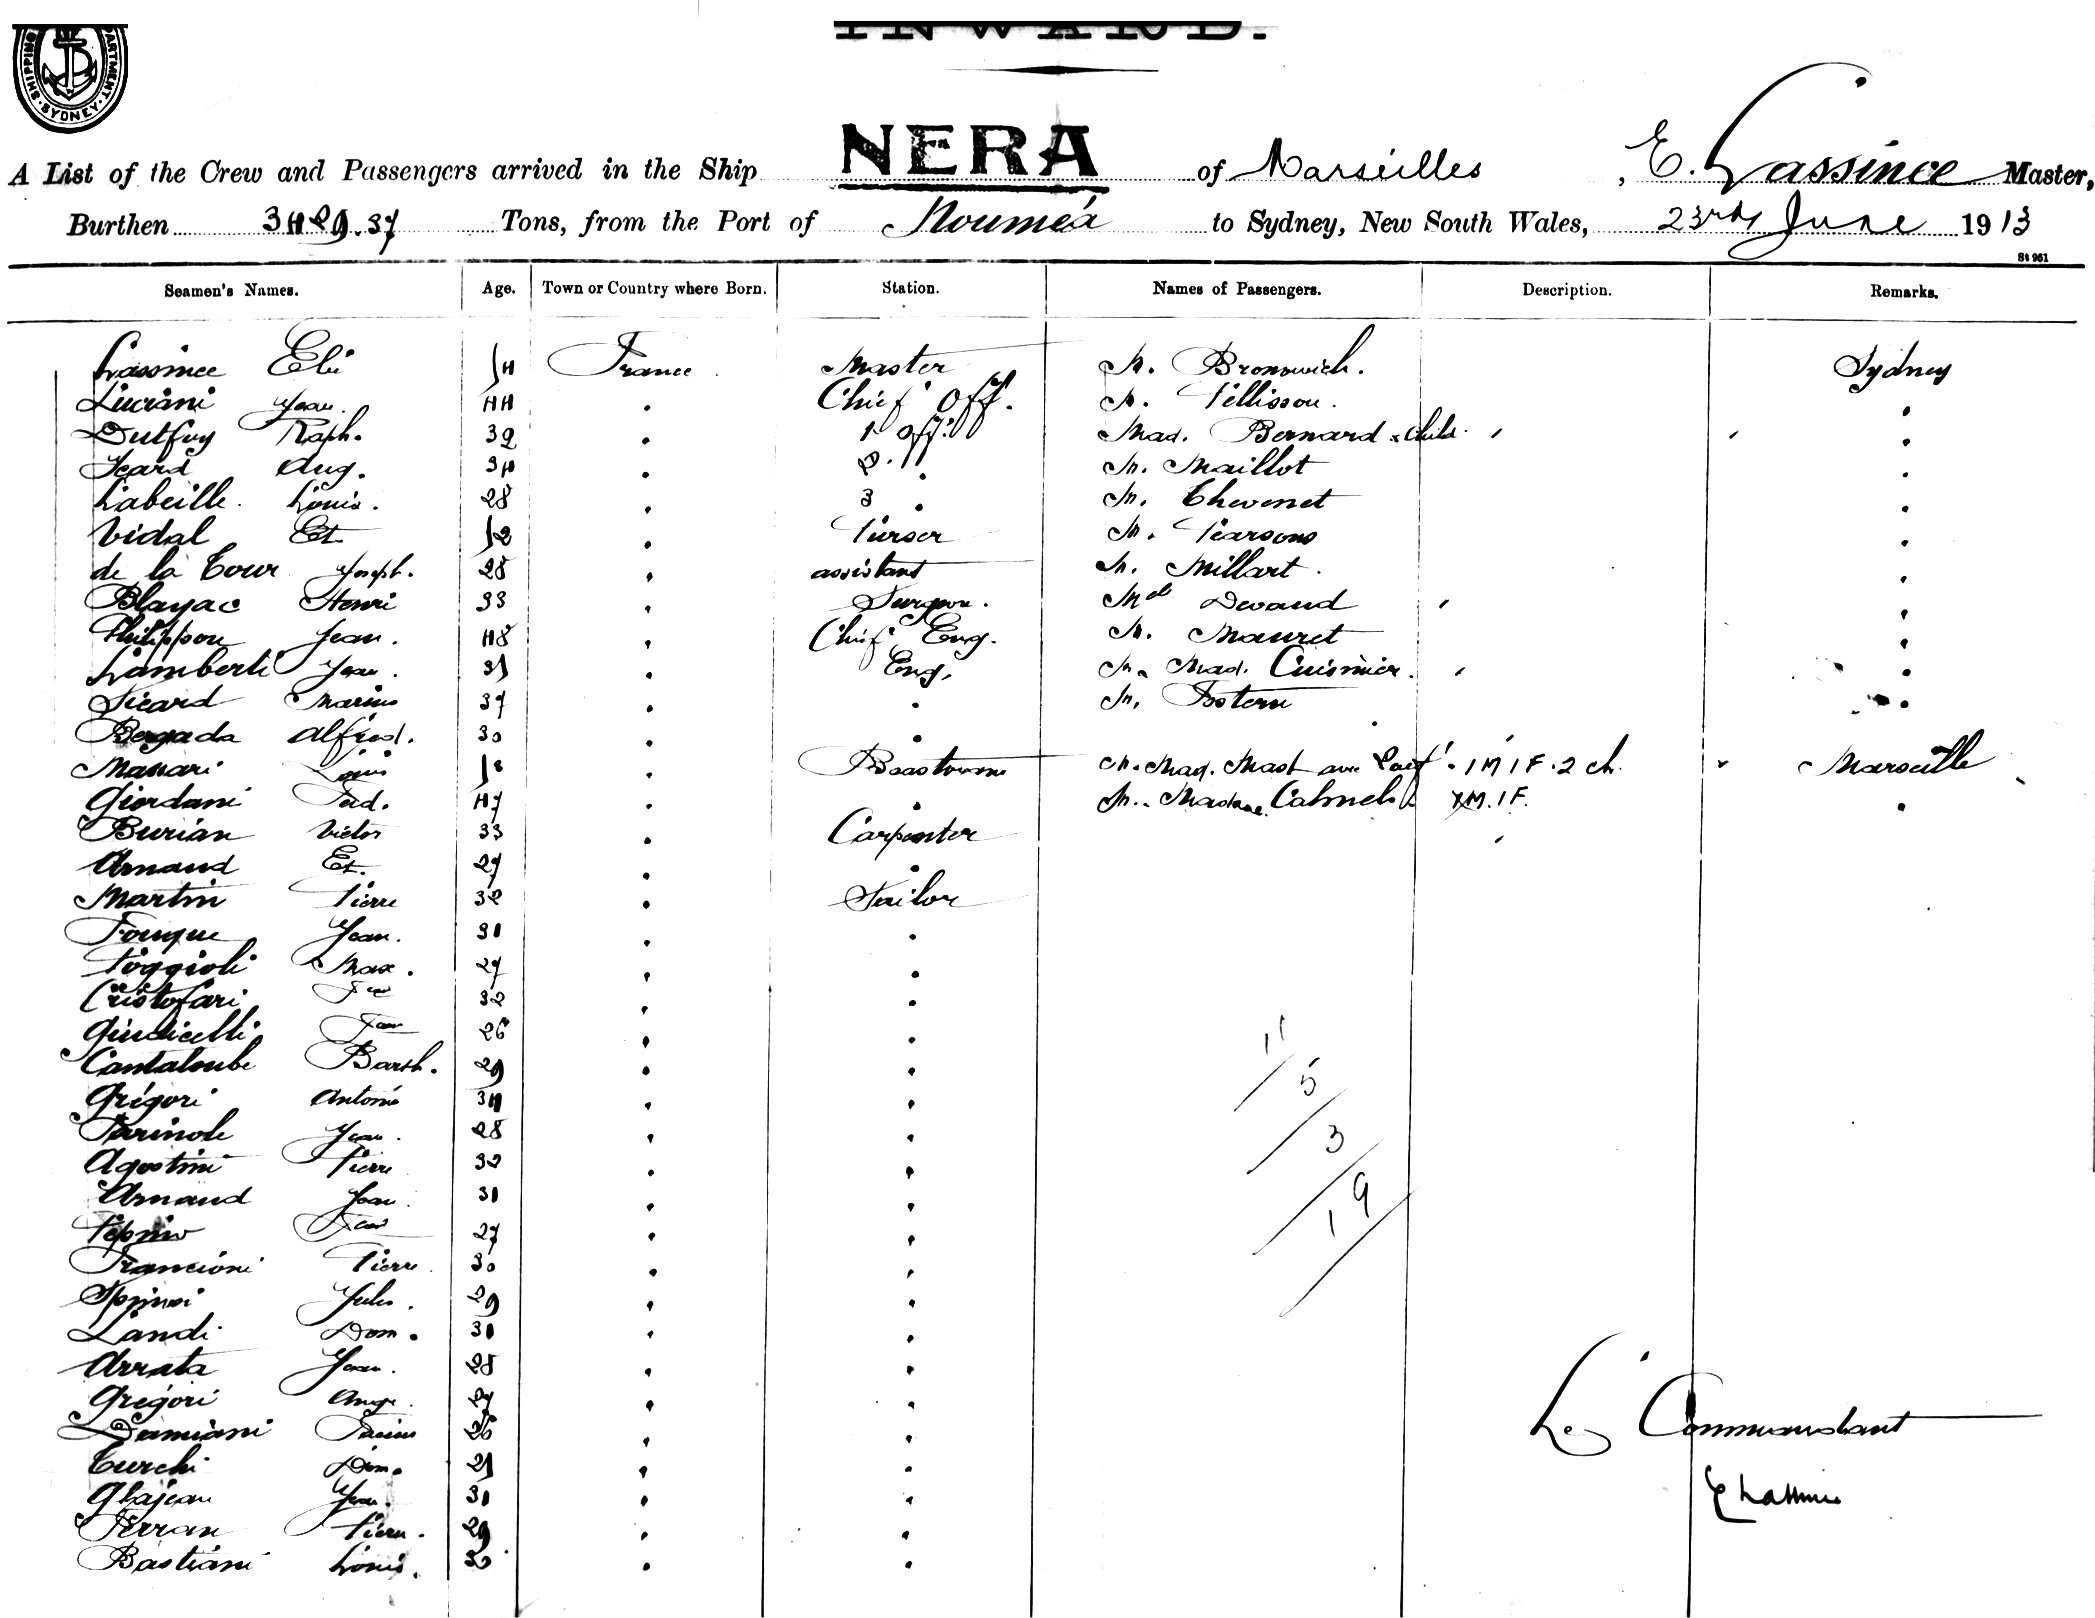 SHIPPING DEPARTMENT SYDNEY
INWARD.
A List of the Crew and Passengers arrived in the Ship NERA of Marseilles, E. Lassince Master,
Burthen 3429.37 Tons, from the Port of Nouméa to Sydney, New South Wales, 23rd June 1913
St 961
Seamen's Names. Age. Town or Country where Born. Station. Names of Passengers. Description. Remarks.
Lassince Elie 54 France Master M. Bronowich. Sydney
Luciani Jean. 44 Chief Off. M. Pellisson.
Dutfuy Raph. 39 1 Off. Mad. Bernard & Child
Icard Aug. 34 2. M. Maillot
Labeille. Louis. 28 3 M. Chevenet
Vidal Et 52 Purser M. Pearsons
de la Tour Joseph. 28 assistant M. Millart.
Blayac Henri 33 Surgeon. Mel Devaud
Philippon Jean. 48 Chief Eng. M. Mauret
Lamberti Jean. 35 Eng. M. Mad. Cuisinier.
Sicard Marius 37 M. Fostern
Bergada Alfred. 30
Massari Louis 5 Boastown M. Mad. Mast 1 M 1 F. 2 ch. Marseille
Giordani Fed. 47 M. Madame Calmels 1M. 1F.
Burian Victor 33 Carpenter
Arnaud Et. 27
Martin Pierre 32 Sailor
Fouque Jean. 31
Poggioli Max. 27
Cristofari 32
Giudicelli 26
Cantaloube Barth. 29 11
Grégori Antoine 34 5
Parinole Jean. 28 3
Agostini Pierre 32
Arnaud Jean 31 19
27
Francioni Pierre 30
Spinosi Jules. 29
Landi Dom. 31
Arrata Jean. 28
Grégori Ange. 27
Damiani 26 Le Commandant
Turchi Dom. 25
Glajean Jean. 31 E Lassince
Ferran Pierre. 29
Bastiani Louis. 30